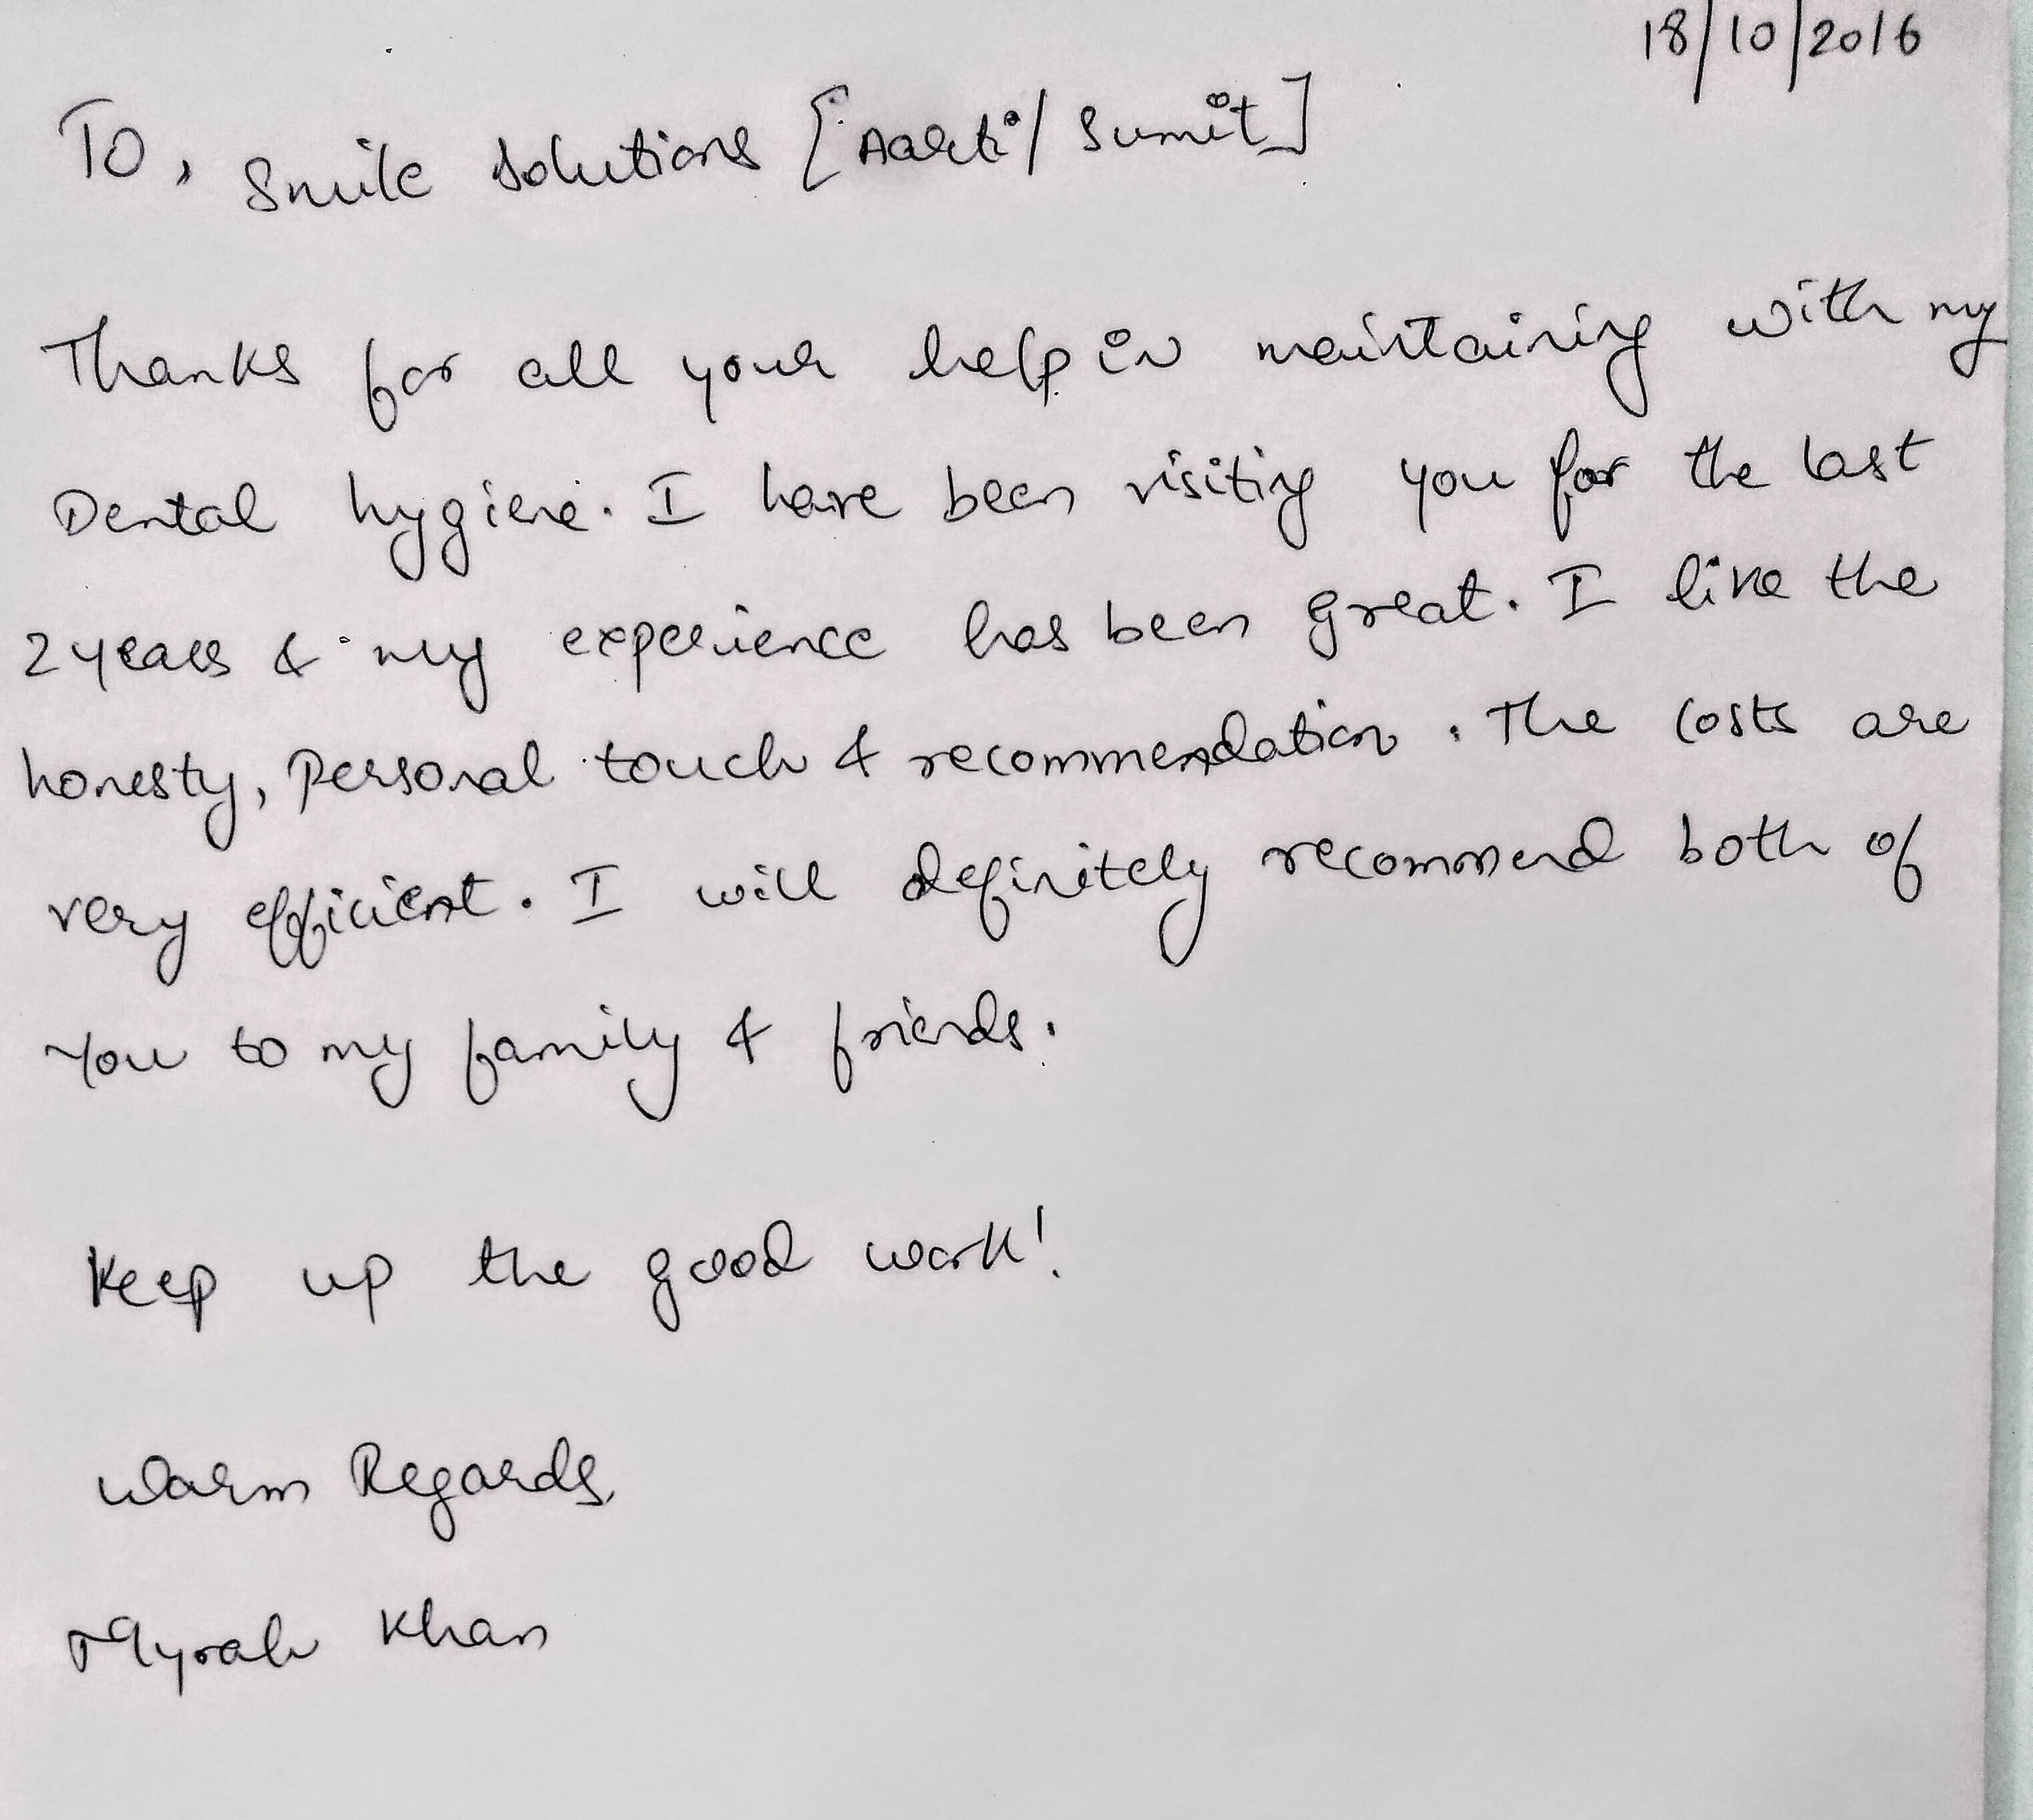 18/10/2016
To, Smile Solutions [Aarti/Sumit]
Thanks for all your help in maintaining with my
Dental hygiene. I have been visiting you for the last
2 years & my experience has been great. I like the
honesty, Personal touch & recommendation. The costs are
very efficient. I will definitely recommend both of
You to my family & friends.
Keep up the good work!
Warm Regards,
Myrah Khan